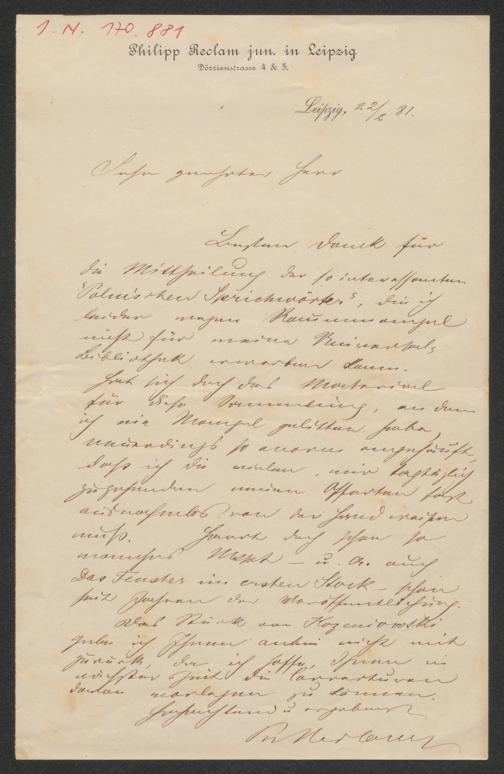 I. N. 170.881
Philipp Reclam jun. in Leipzig
Dörrienstrasse 4 & 5.
Leipzig, 22/2 81.
Sehr geehrter Herr
Besten Dank für
die Mittheilung der so interessanten
"Polnischen Sprichwörter", die ich
leider wegen Raummangel
nicht für meine Universal-
Bibliothek erwerben kann.
Hat sich doch das Material
für diese Sammlung, an dem
ich nie Mangel gelitten habe
neuerdings so enorm angehäuft,
daß ich die vielen, mir tagtäglich
zugehenden neuen Offerten fast
ausnahmslos von der Hand weisen
muß. Harrt doch schon so
manches Mspt – u. A. auch
Das Fenster im ersten Stock – schon
seit Jahren der Veröffentlichung.
Das Stück von Kozeniowski
gebe ich Ihnen anbei nicht mit
zurück, da ich hoffe, Ihnen in
nächster Zeit die Correcturen
davon vorlegen zu können.
Hochachtend u ergebenst
Ph Reclam